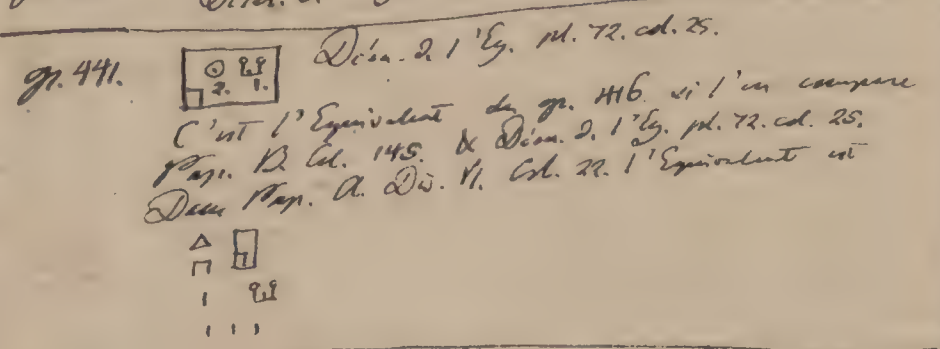 gr. 441. Déscr. d. l'Eg. pl. 72. col. 25.
2. 1.
C'est l'Equivalent du gr. 446. si l'on compare
Pap. B. Col. 145. & Déscr. d. l'Eg. pl. 72. col. 25.
Dans Pap. A. Div. VI. Col. 22. l'Equivalent est